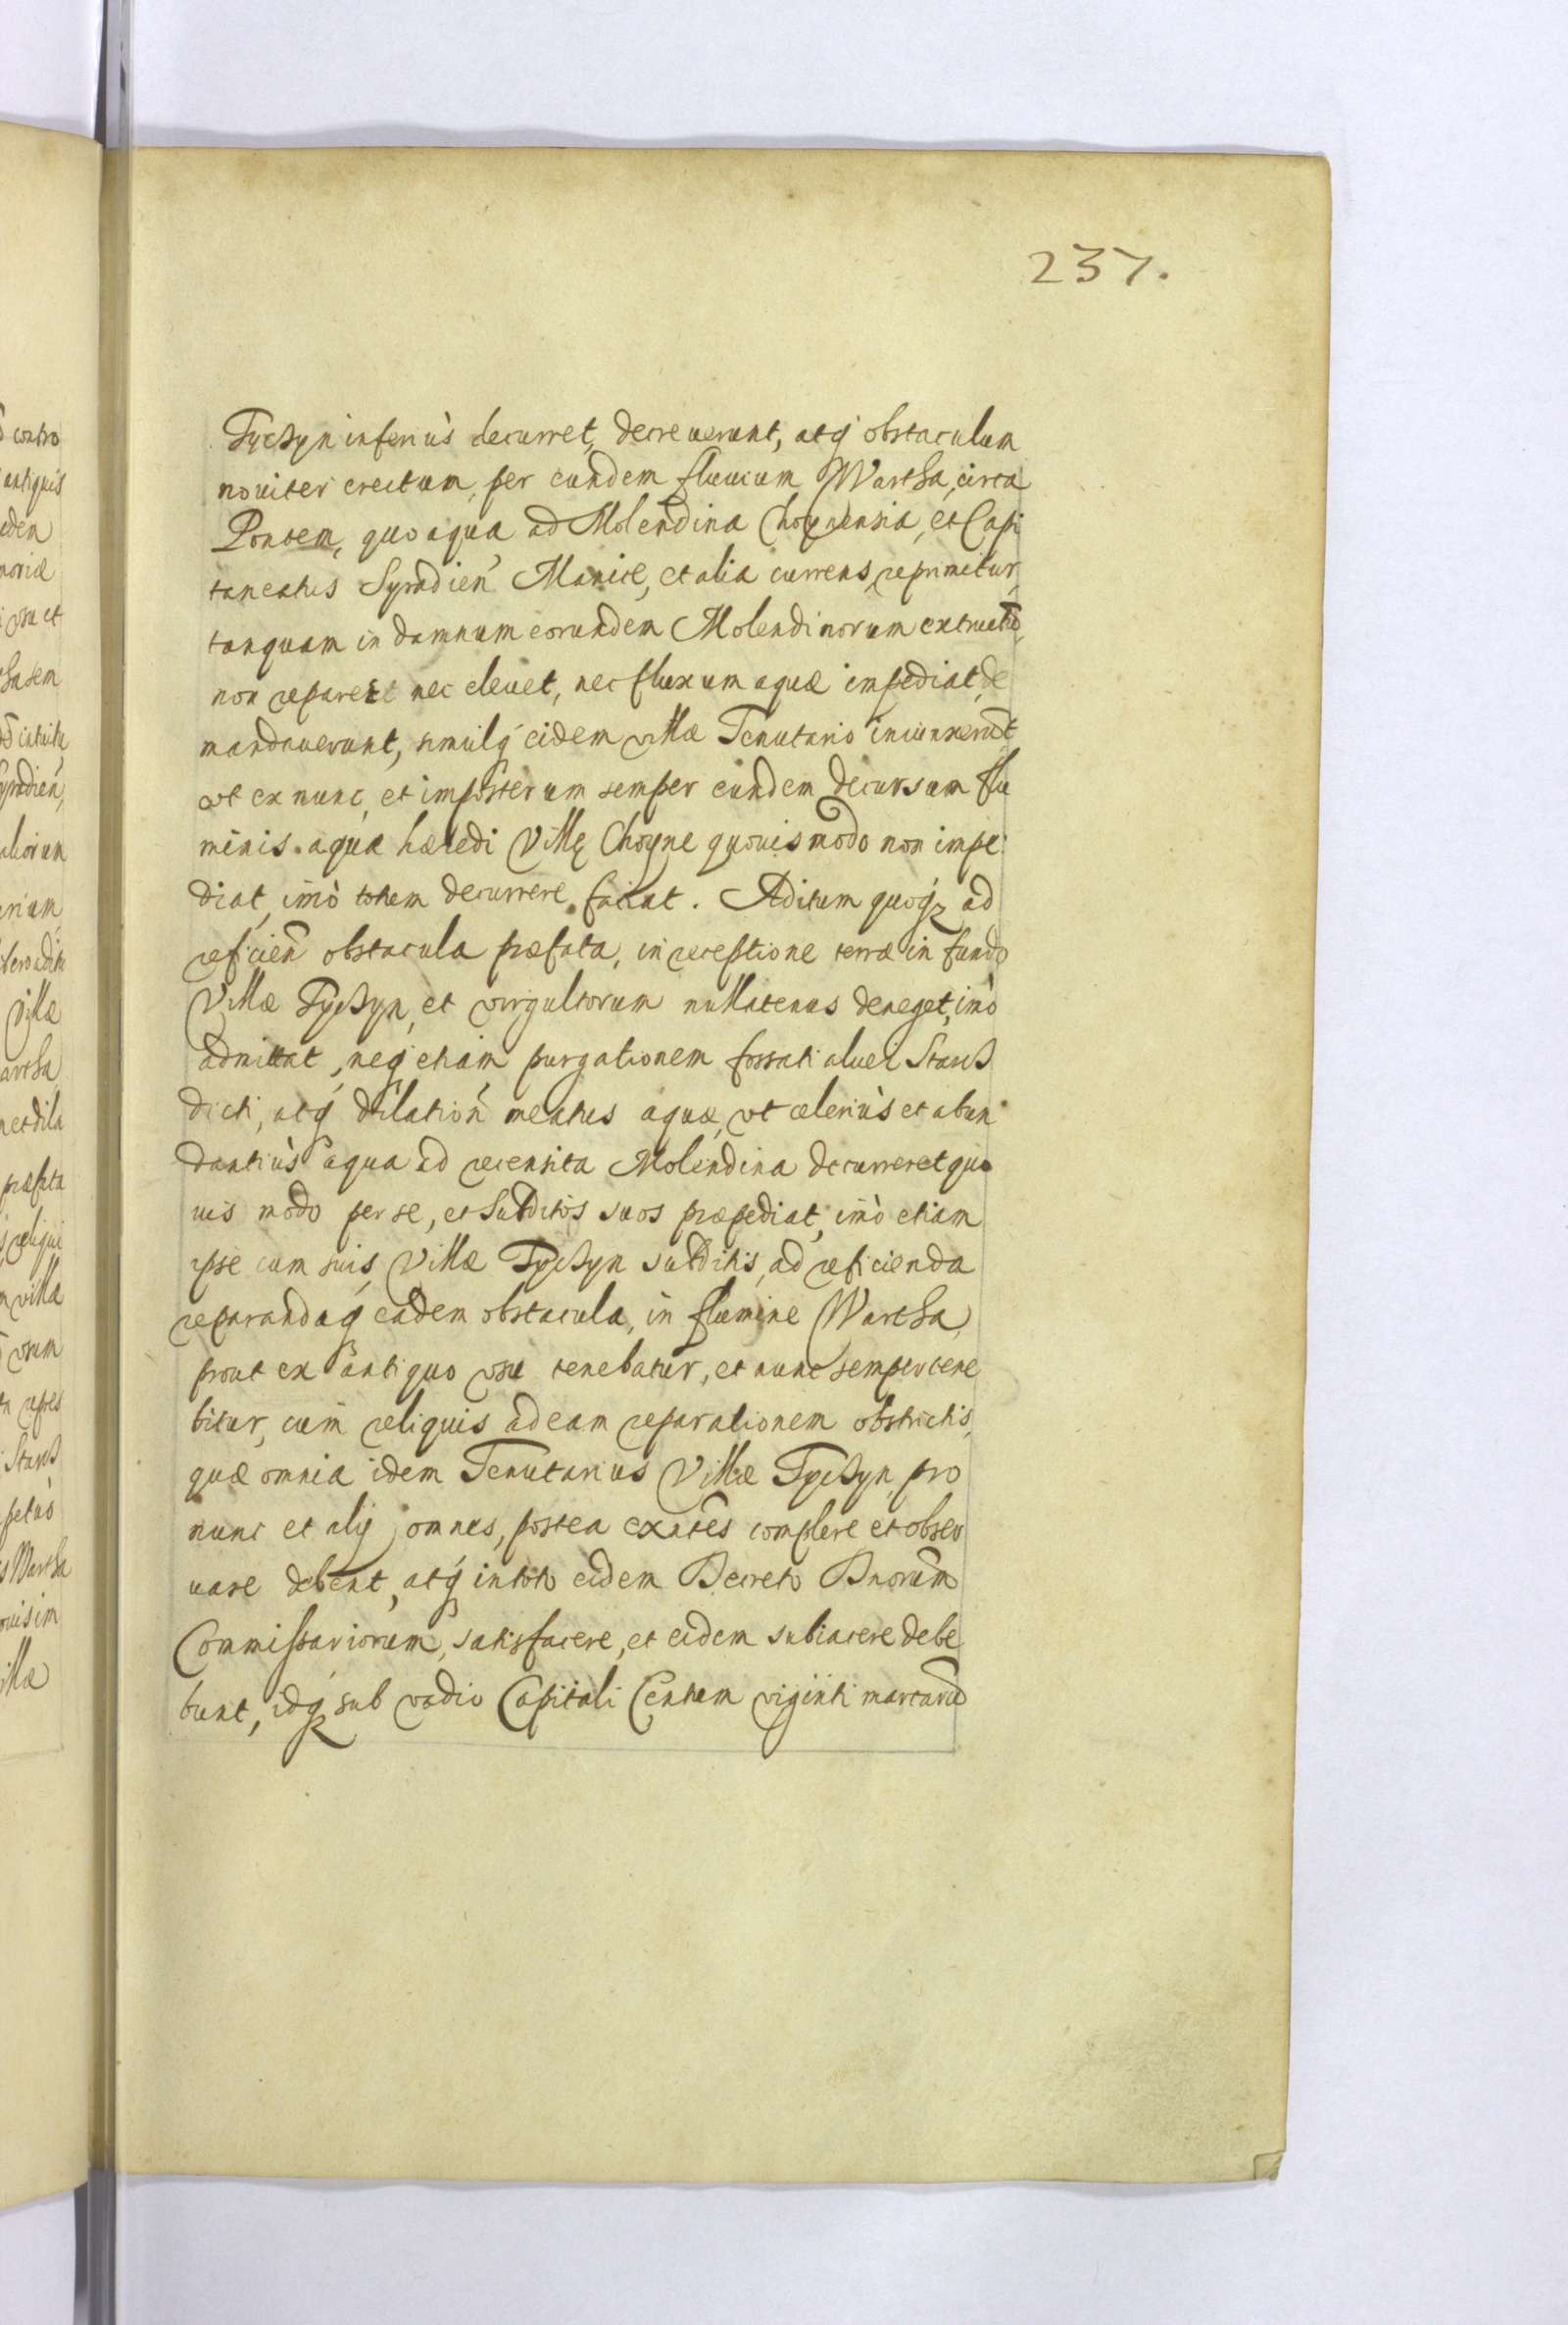 237.
Tyczyn inferiùs decurret, decreuerunt, atq́ obstaculum
nouiter erectum, per eundem fluuium Wartha, circa
Pontem, quo aqua ad Molendina Choynensia, et Capi
taneatus Syradień Manice, et alia currens, reprimitur,
tanquam in damnum eorundem Molendinorum extructū,
non reparet nec eleuet, nec fluxum aquæ impediat, de
mandauerunt, simulq́ eidem villæ Tenutario iniunxerūt
vt ex nunc, et imposterum semper eundem decursum flu
minis aquæ hæredi Villę Choyne quouismodo non impe
diat, imò totum decurrere faciat. Aditum quoq́ ad
reficień obstacula præfata, in receptione terræ in fundo
Villæ Tyczyn, et virgultorum nullatenus deneget, imò
admittat, neq́ etiam purgationem fossati aluei Stars
dicti, atq́ dilatioń meatus aquæ, vt celeriùs et abun
dantiùs aqua ad recensita Molendina decurreret quo
uis modo per se, et Subditos suos præpediat, imò etiam
ipse cum suis, Villæ Tyczyn subditis, ad reficienda
reparandaq́ eadem obstacula, in flumine Wartha,
prout ex antiquo vsu tenebatur, et nunc semper tene
bitur, cum reliquis ad eam reparationem obstrictis,
quæ omnia idem Tenutarius Villæ Tyczyn, pro
nunc et alij omnes, postea exñtes complere et obser
uare debent, atq́ in toto eidem Decreto Dnorum
Commissariorum, satisfacere, et eidem subiacere debe
bunt, idq́ sub vadio Capitali Centum viginti marcarū